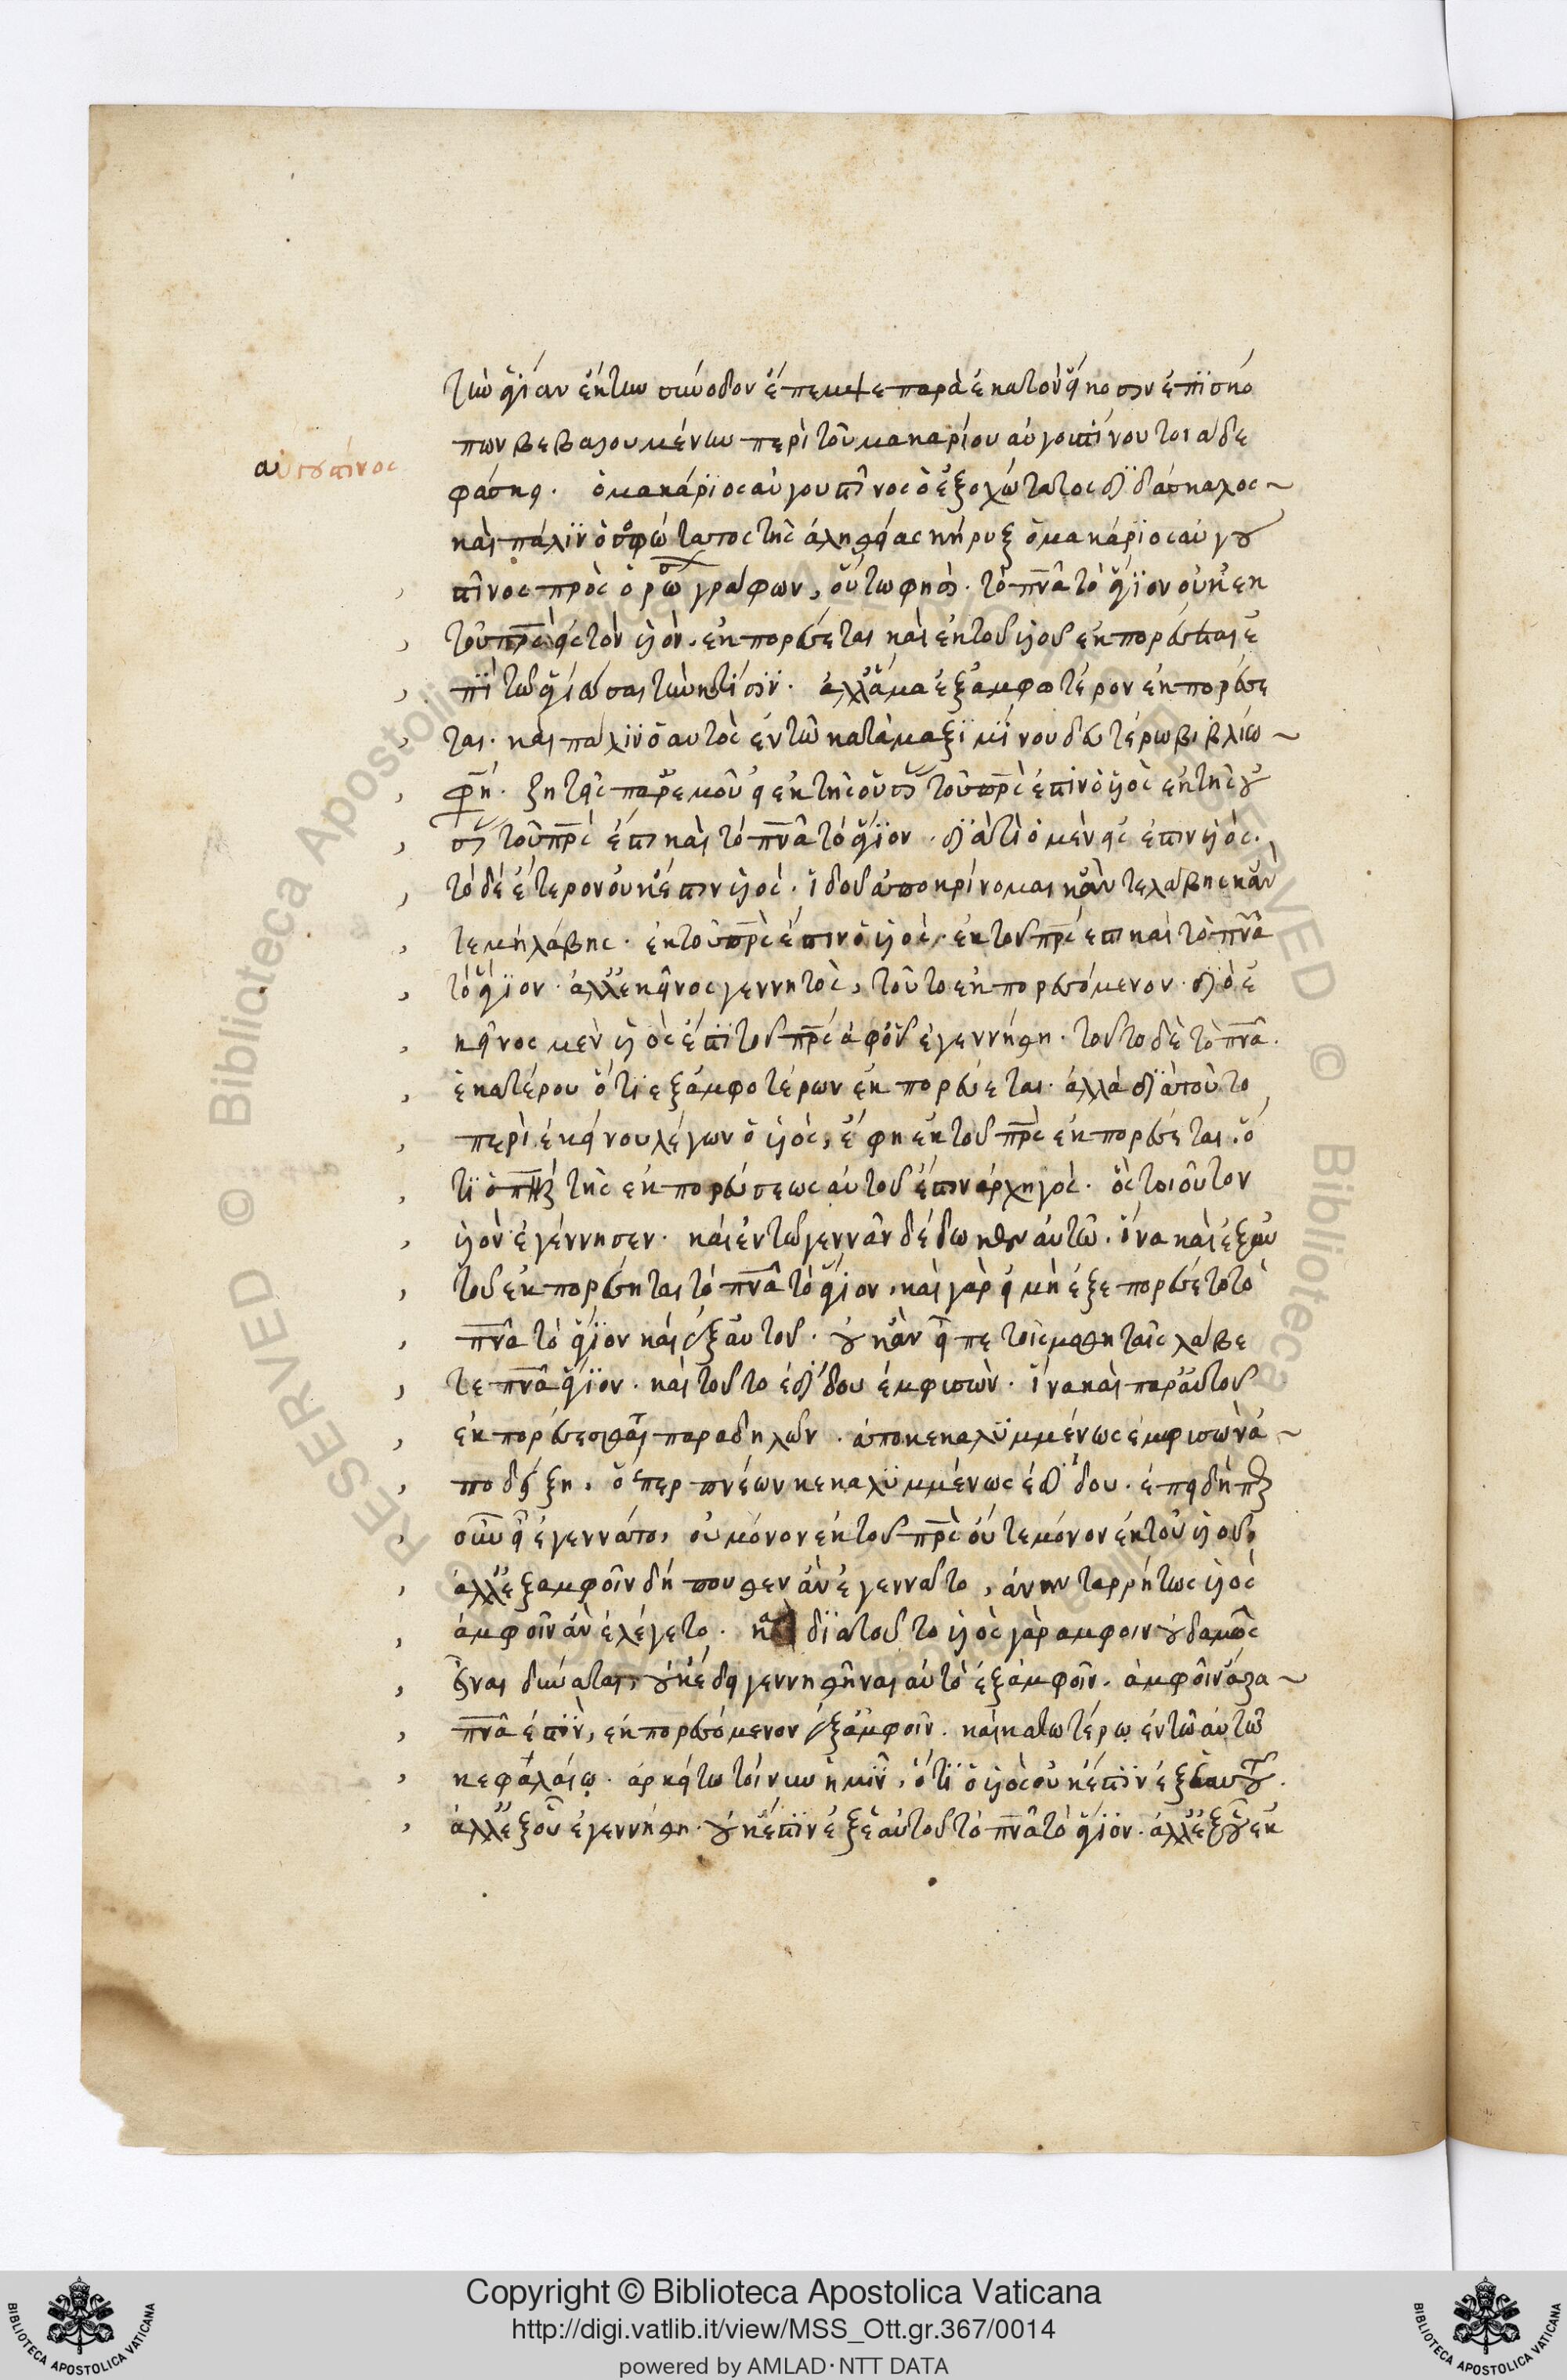 τὴν ἁγίαν ἕκτην σύνοδον ἔπεμψε παρὰ ἑκατὸν εἴκοσιν ἐπισκό
πων βεβαιουμένην περὶ τοῦ μακαρίου αὐγουστίνου τοιάδε
αὐγουστῖνος
φάσκει. ὁ μακάριος αὐγουστῖνος ὁ ἐξοχώτατος διδάσκαλος
καὶ πάλιν ὁ σοφώτατος τῆς ἀληθείας κήρυξ ὁ μακάριος αὐγου
στῖνος πρὸς ὀρώσιον γράφων, οὕτω φησί. τὸ πνα τὸ ἅγιον οὐκ ἐκ
τοῦ πρς εἰς τὸν υἱὸν ἐκπορεύεται καὶ ἐκ τοῦ υἱοῦ ἐκπορεύεται ἐ
πὶ τῶ ἁγιάσαι τὴν κτίσιν. ἀλλ' ἅμα ἐξ ἀμφοτέρον ἐκπορεύε
ται. καὶ πάλιν ὁ αυτὸς ἐν τῶ κατὰ μαξιμίνου δευτέρω βιβλίω
φη. ζητεῖς παρ' ἐμοῦ εἰ ἐκ τῆς οὐσίας τοῦ πρς ἐστὶν ὁ υἱὸς ἐκ τῆς οὐ
σίας τοῦ πρς ἐστι καὶ τὸ πνα τὸ ἅγιον. διὰ τί ὁ μὲν εἷς ἐστιν υἱὸς.
τὸ δὲ ἕτερον οὐκ ἔστιν υἱός. ἰδοὺ ἀποκρίνομαι κἄν τε λάβης κἄν
τε μὴ λάβης. ἐκ τοῦ πρς ἐστιν ὁ υἱὸς, ἐκ τοῦ πρς ἐστι καὶ τὸ πνα
τὸ ἅγιον. ἀλλ' ἐκεῖνος γεννητὸς, τοῦτο ἐκπορευόμενον. διὸ ἐ
κεῖνος μὲν υἱὸς ἐστὶ τοῦ πρς ἀφ' οὗ ἐγεννήθη. τοῦτο δὲ τὸ πνα.
ἑκατέρου ὅτι ἐξ ἀμφοτέρων ἐκπορεύεται. ἀλλὰ διὰ τοῦτο
περὶ ἐκείνου λέγων ὁ υἱὸς, ἔφη ἐκ τοῦ πρς ἐκπορεύεται. ὅ
τι ὁ πηρ τῆς ἐκπορεύσεως αὐτοῦ ἐστιν ἀρχηγὸς. ὃς τοιοῦτον
υἱὸν ἐγέννησεν. καὶ ἐν τῶ γεννᾶν δέδωκεν αὐτῶ. ἵνα καὶ ἐξ αὐ
τοῦ ἐκπορεύηται τὸ πνα τὸ ἅγιον, καὶ γὰρ εἰ μὴ ἐξεπορεύετο τὸ
πνα τὸ ἅγιον καὶ ἐξ αὐτοῦ. οὐκ ἂν εἶπε τοῖς μαθηταῖς λάβε
τε πνα ἅγιον. καὶ τοῦτο ἐδίδου ἐμφυσῶν. ἵνα καὶ παρ' αὐτοῦ
ἐκπορεύεσθαι παραδηλῶν. ἀποκεκαλυμμένως ἐμφυσῶν ἀ
ποδείξη, ὅπερ πνέων κεκαλυμμένως ἐδίδου. ἐπειδήπερ
οὖν εἰ ἐγεννᾶτο, οὐ μόνον ἐκ τοῦ πρς οὔτε μόνον ἐκ τοῦ υἱοῦ
ἀλλ' ἐξ ἀμφοῖν δήπουθεν ἂν ἐγεννᾶτο, ἀναντιρρήτως υἱὸς
ἀμφοῖν ἂν ἐλέγετο. διὰ τοῦτο υἱὸς γὰρ ἀμφοιν οὐδαμῶς
εἶναι δύναται, οὐκ ἔδει γεννηθῆναι αὐτὸ ἐξ ἀμφοῖν. ἀμφοῖν ἄρα
πνα ἐστὶν, ἐκπορευόμενον ἐξ ἀμφοῖν. καὶ κατωτέρω ἐν τῶ αὐτῶ
κεφαλαίω. ἀρκείτω τοίνυν ἡμῖν, ὅτι ὁ υἱὸς οὐκ ἔστιν ἐξ ἑαυτοῦ.
ἀλλ' ἐξ οὗ ἐγεννήθη. οὐκ ἔστιν ἐξ ἑαυτοῦ τὸ πνα τὸ ἅγιον. ἀλλ' ἐξ οὗ ἐκ
RESERVED © Biblioteca Apostolica Vaticana
RESERVED © Biblioteca
Copyright © Biblioteca Apostolica Vaticana
http://digi.vatlib.it/view/MSS_Ott.gr.367/0014
powered by AMLAD·NTT DATA
BIBLIOTECA APOSTOLICA VATICANA
BIBLIOTECA APOSTOLICA VATICANA